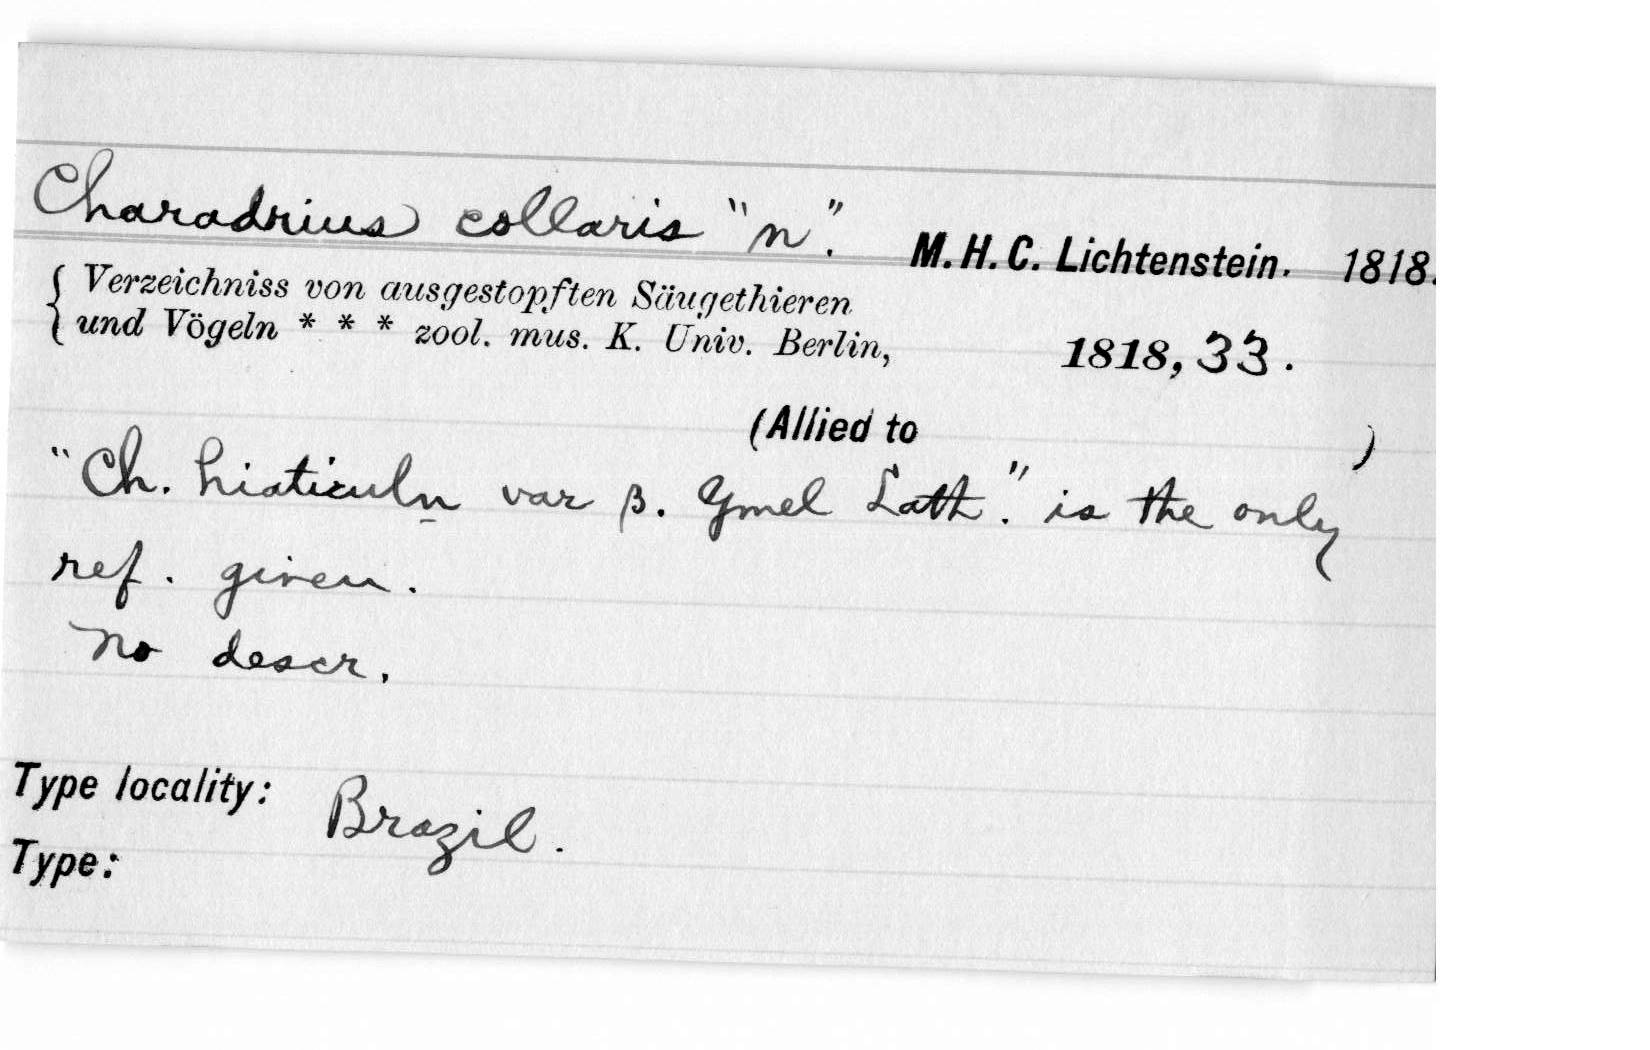 Charadrius collaris "n". M. H. C. Lichtenstein. 1818.
{ Verzeichniss von ausgestopften Säugethieren
und Vögeln * * * zool. mus. K. Univ. Berlin, 1818, 33.
(Allied to )
"Ch. hiaticuln var β. Gmel Lath." is the only
ref. given.
No descr.
Type locality: Brazil.
Type: